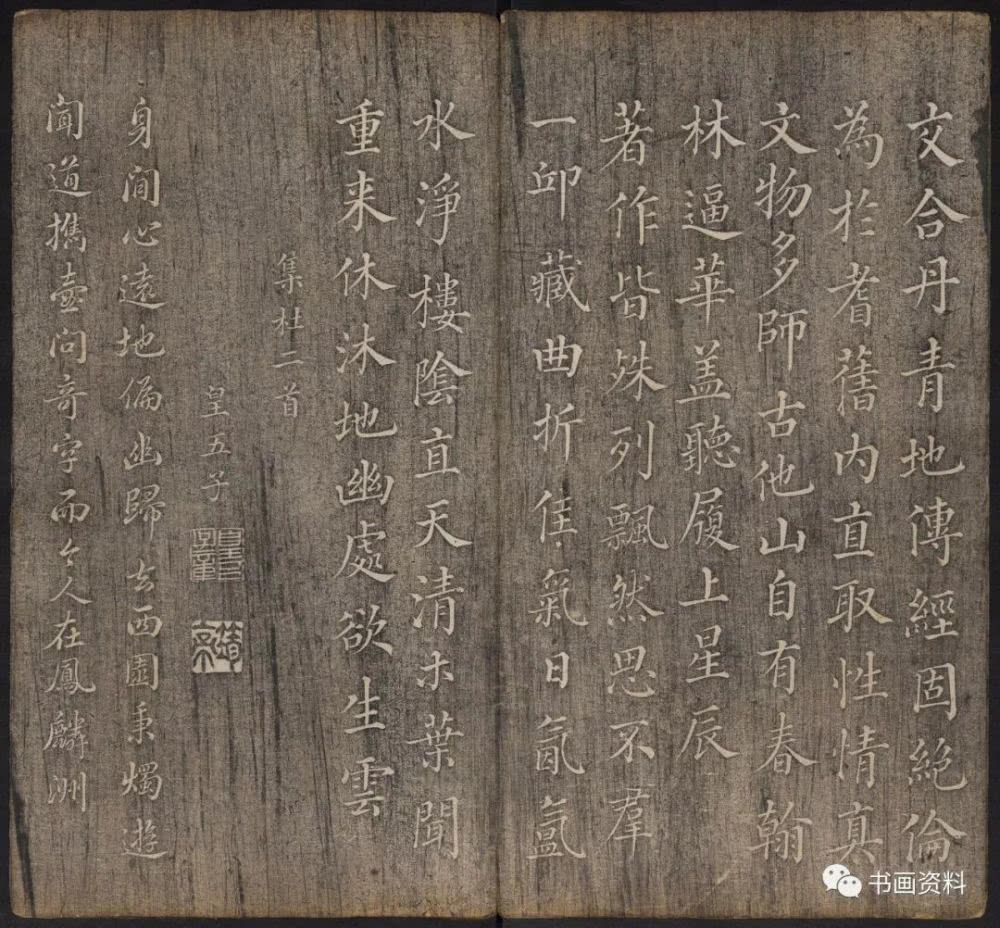 文合丹青地傳經固絕倫
為於耆舊内直取性情真
文物多師古他山自有春翰
林逼華盖聽履上星辰
著作皆殊列飄然思不羣
一邱藏曲折佳氣日氤氳
水淨樓陰直天清木葉聞
重来休沐地幽處欲生雲
集杜二首
皇五子
身閒心遠地偏幽歸去西園秉燭遊
聞道攜壺問奇字而今人在鳳麟洲
书画资料